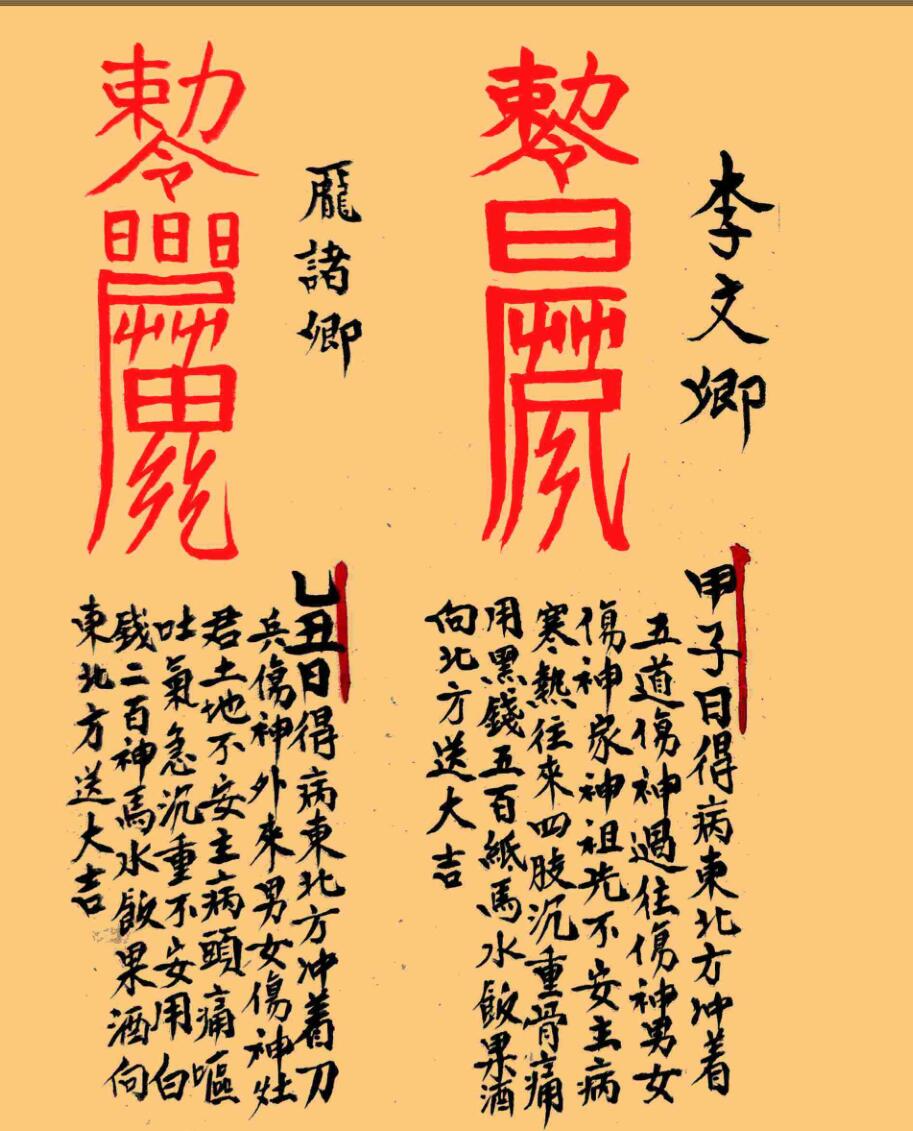 李文卿
勅令
甲子日得病東北方冲着
五道傷神過往傷神男女
傷神家神祖先不安主病
寒熱往來四肢沉重骨痛
用黑錢五百紙馬水飯果酒
向北方送大吉
龎諸卿
勅令
乙丑日得病東北方冲着刀
兵傷神外來男女傷神灶
君土地不安主病頭痛嘔
吐氣急沉重不安用白
錢二百神馬水飯果酒向
東北方送大吉